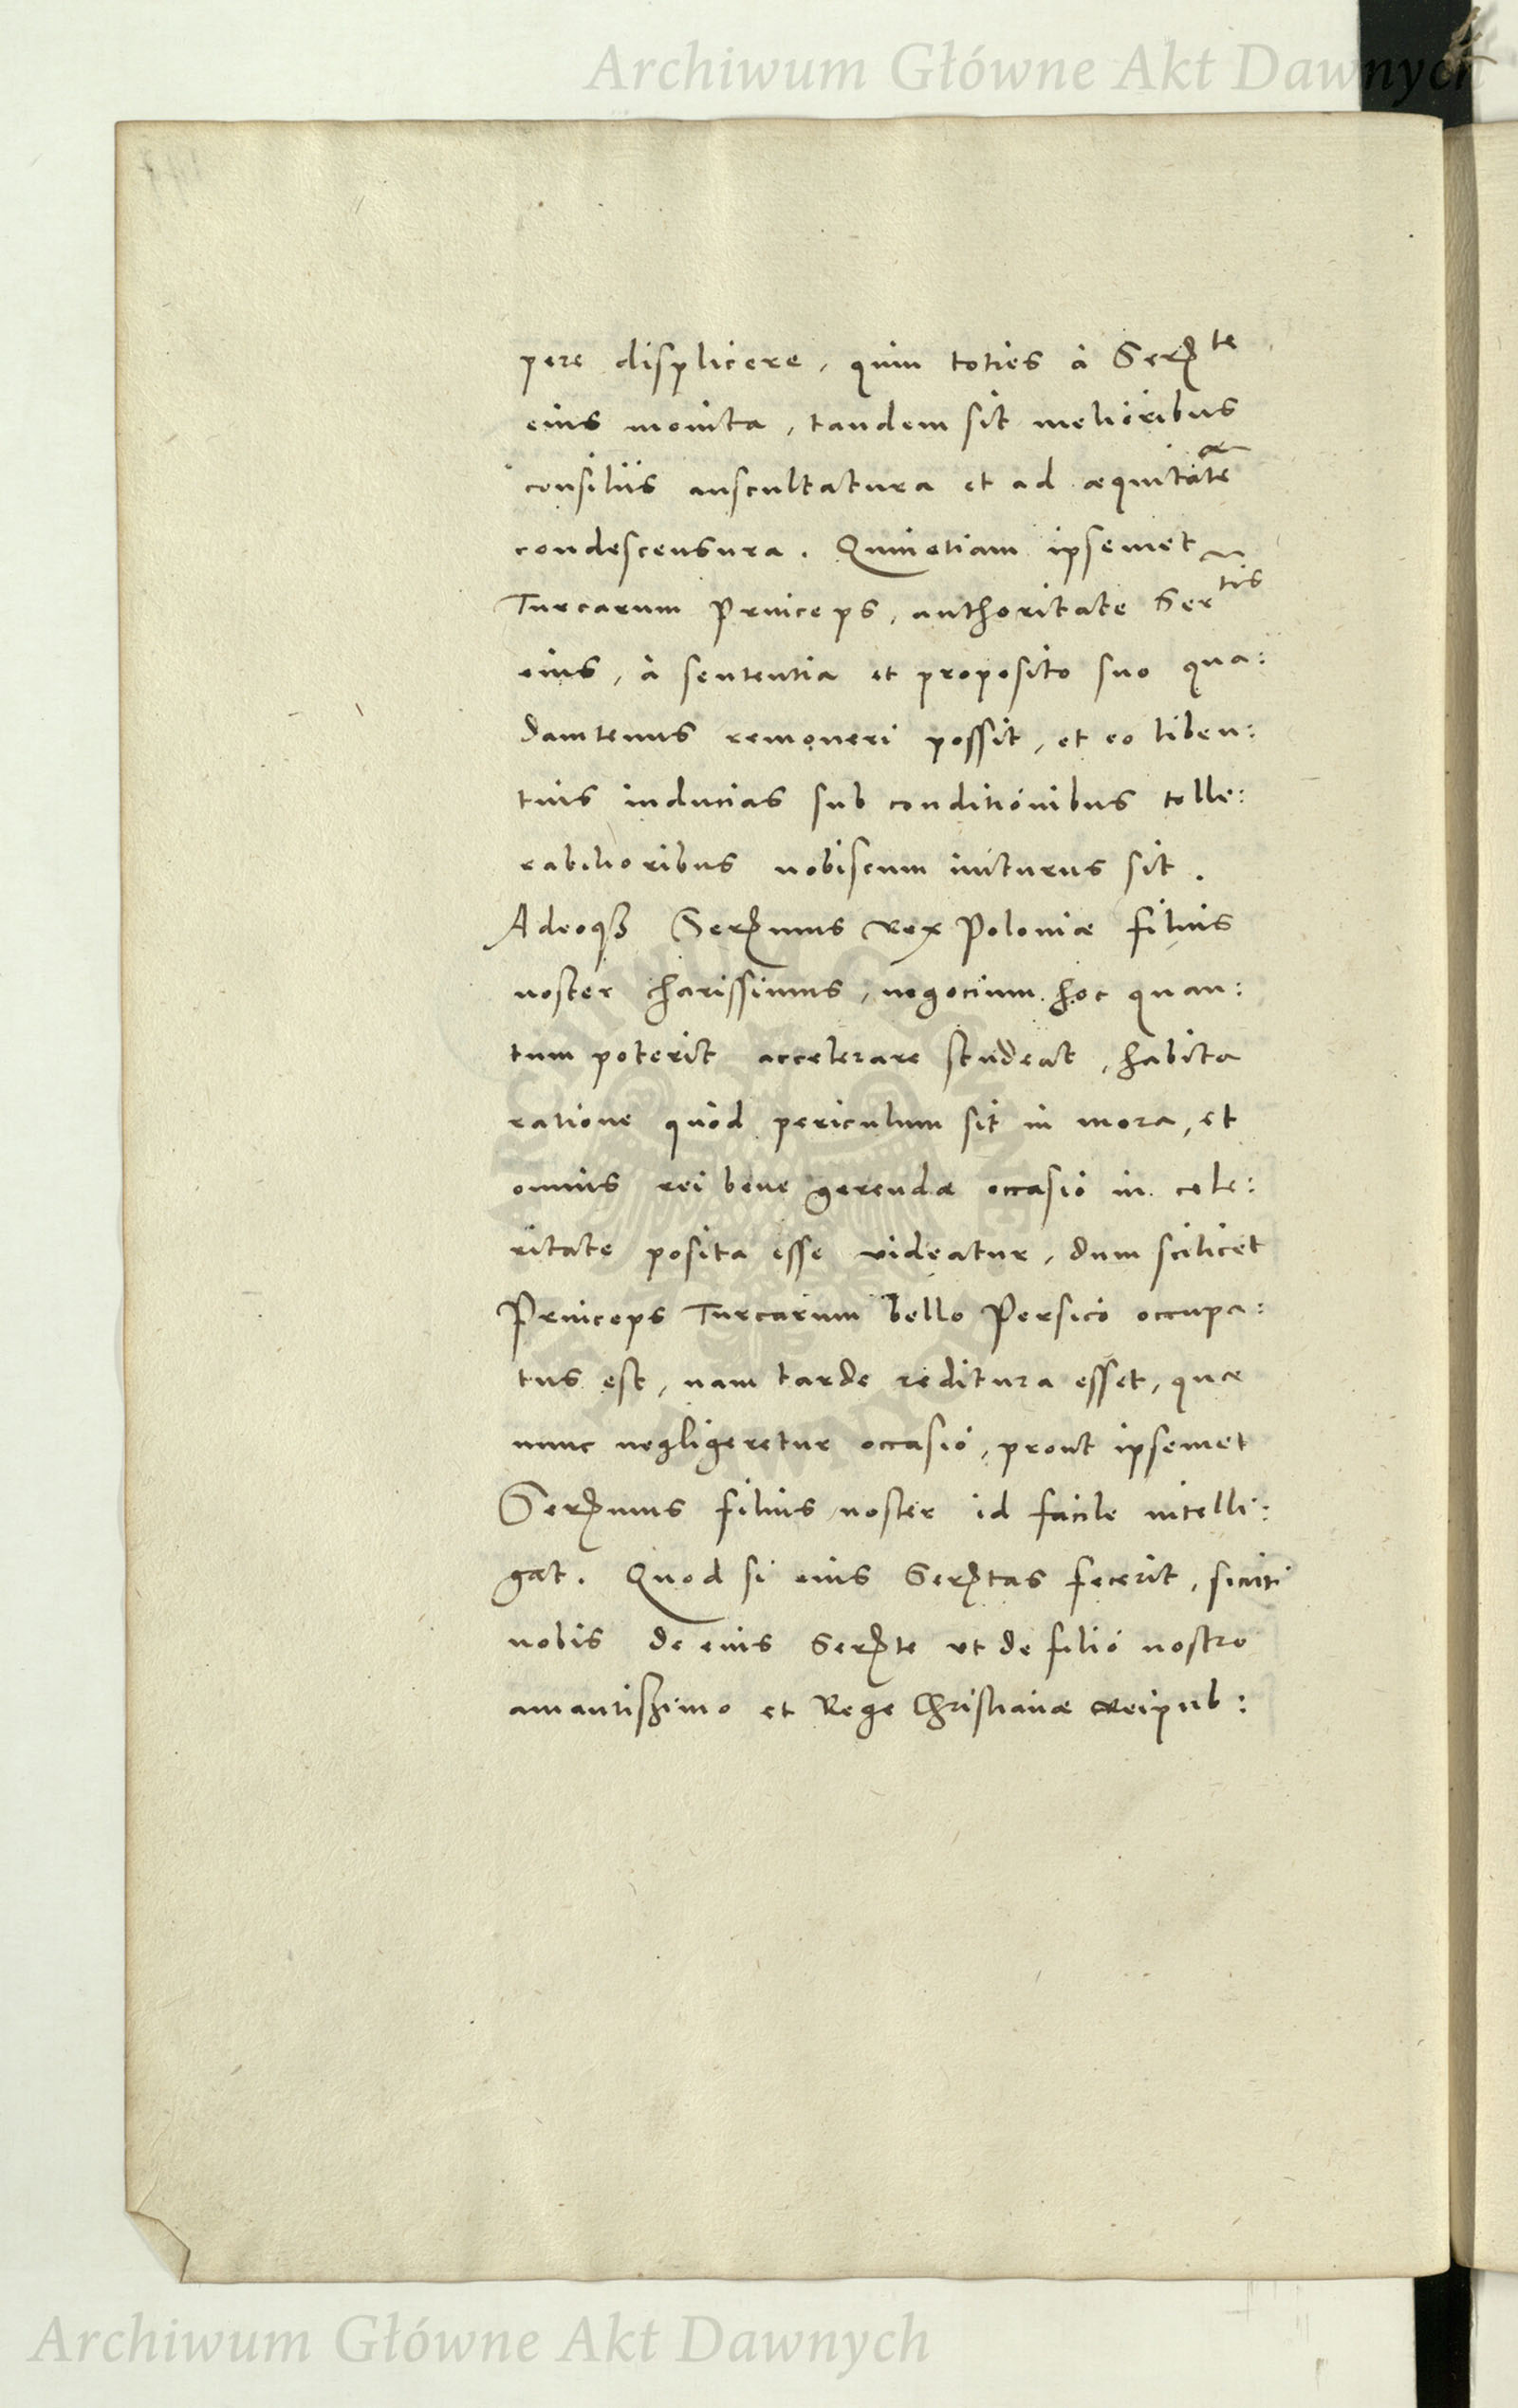 Archiwum Główne Akt Dawnych
pere displicere, quin toties à Serte
eius monita, tandem sit melioribus
consiliis auscultatura et ad æquitatē
condescensura. Quinetiam ipsemet
Turcarum Princeps, authoritate Sertis
eius, à sententia et proposito suo qua:
damtenus remoueri possit, et eo liben:
tius inducias sub conditionibus tolle:
rabilioribus nobiscum initurus sit.
Adeoqȝ Sermus Rex Poloniæ filius
noster charissimus, negocium hoc quan:
tum poterit accelerare studeat, habita
ratione quòd periculum sit in mora, et
omnis rei bene gerendæ occasio in cele:
ritate posita esse videatur, dum scilicet
Princeps Turcarum bello Persico occupa:
tus est, nam tarde reditura esset, quæ
nunc negligeretur occasio, prout ipsemet
Sermus filius noster id facile intelli:
gat. Quod si eius Sertas fecerit, sicuti
nobis de eius Serte vt de filio nostro
amantissimo et Rege Christianæ Reipub:
Archiwum Główne Akt Dawnych